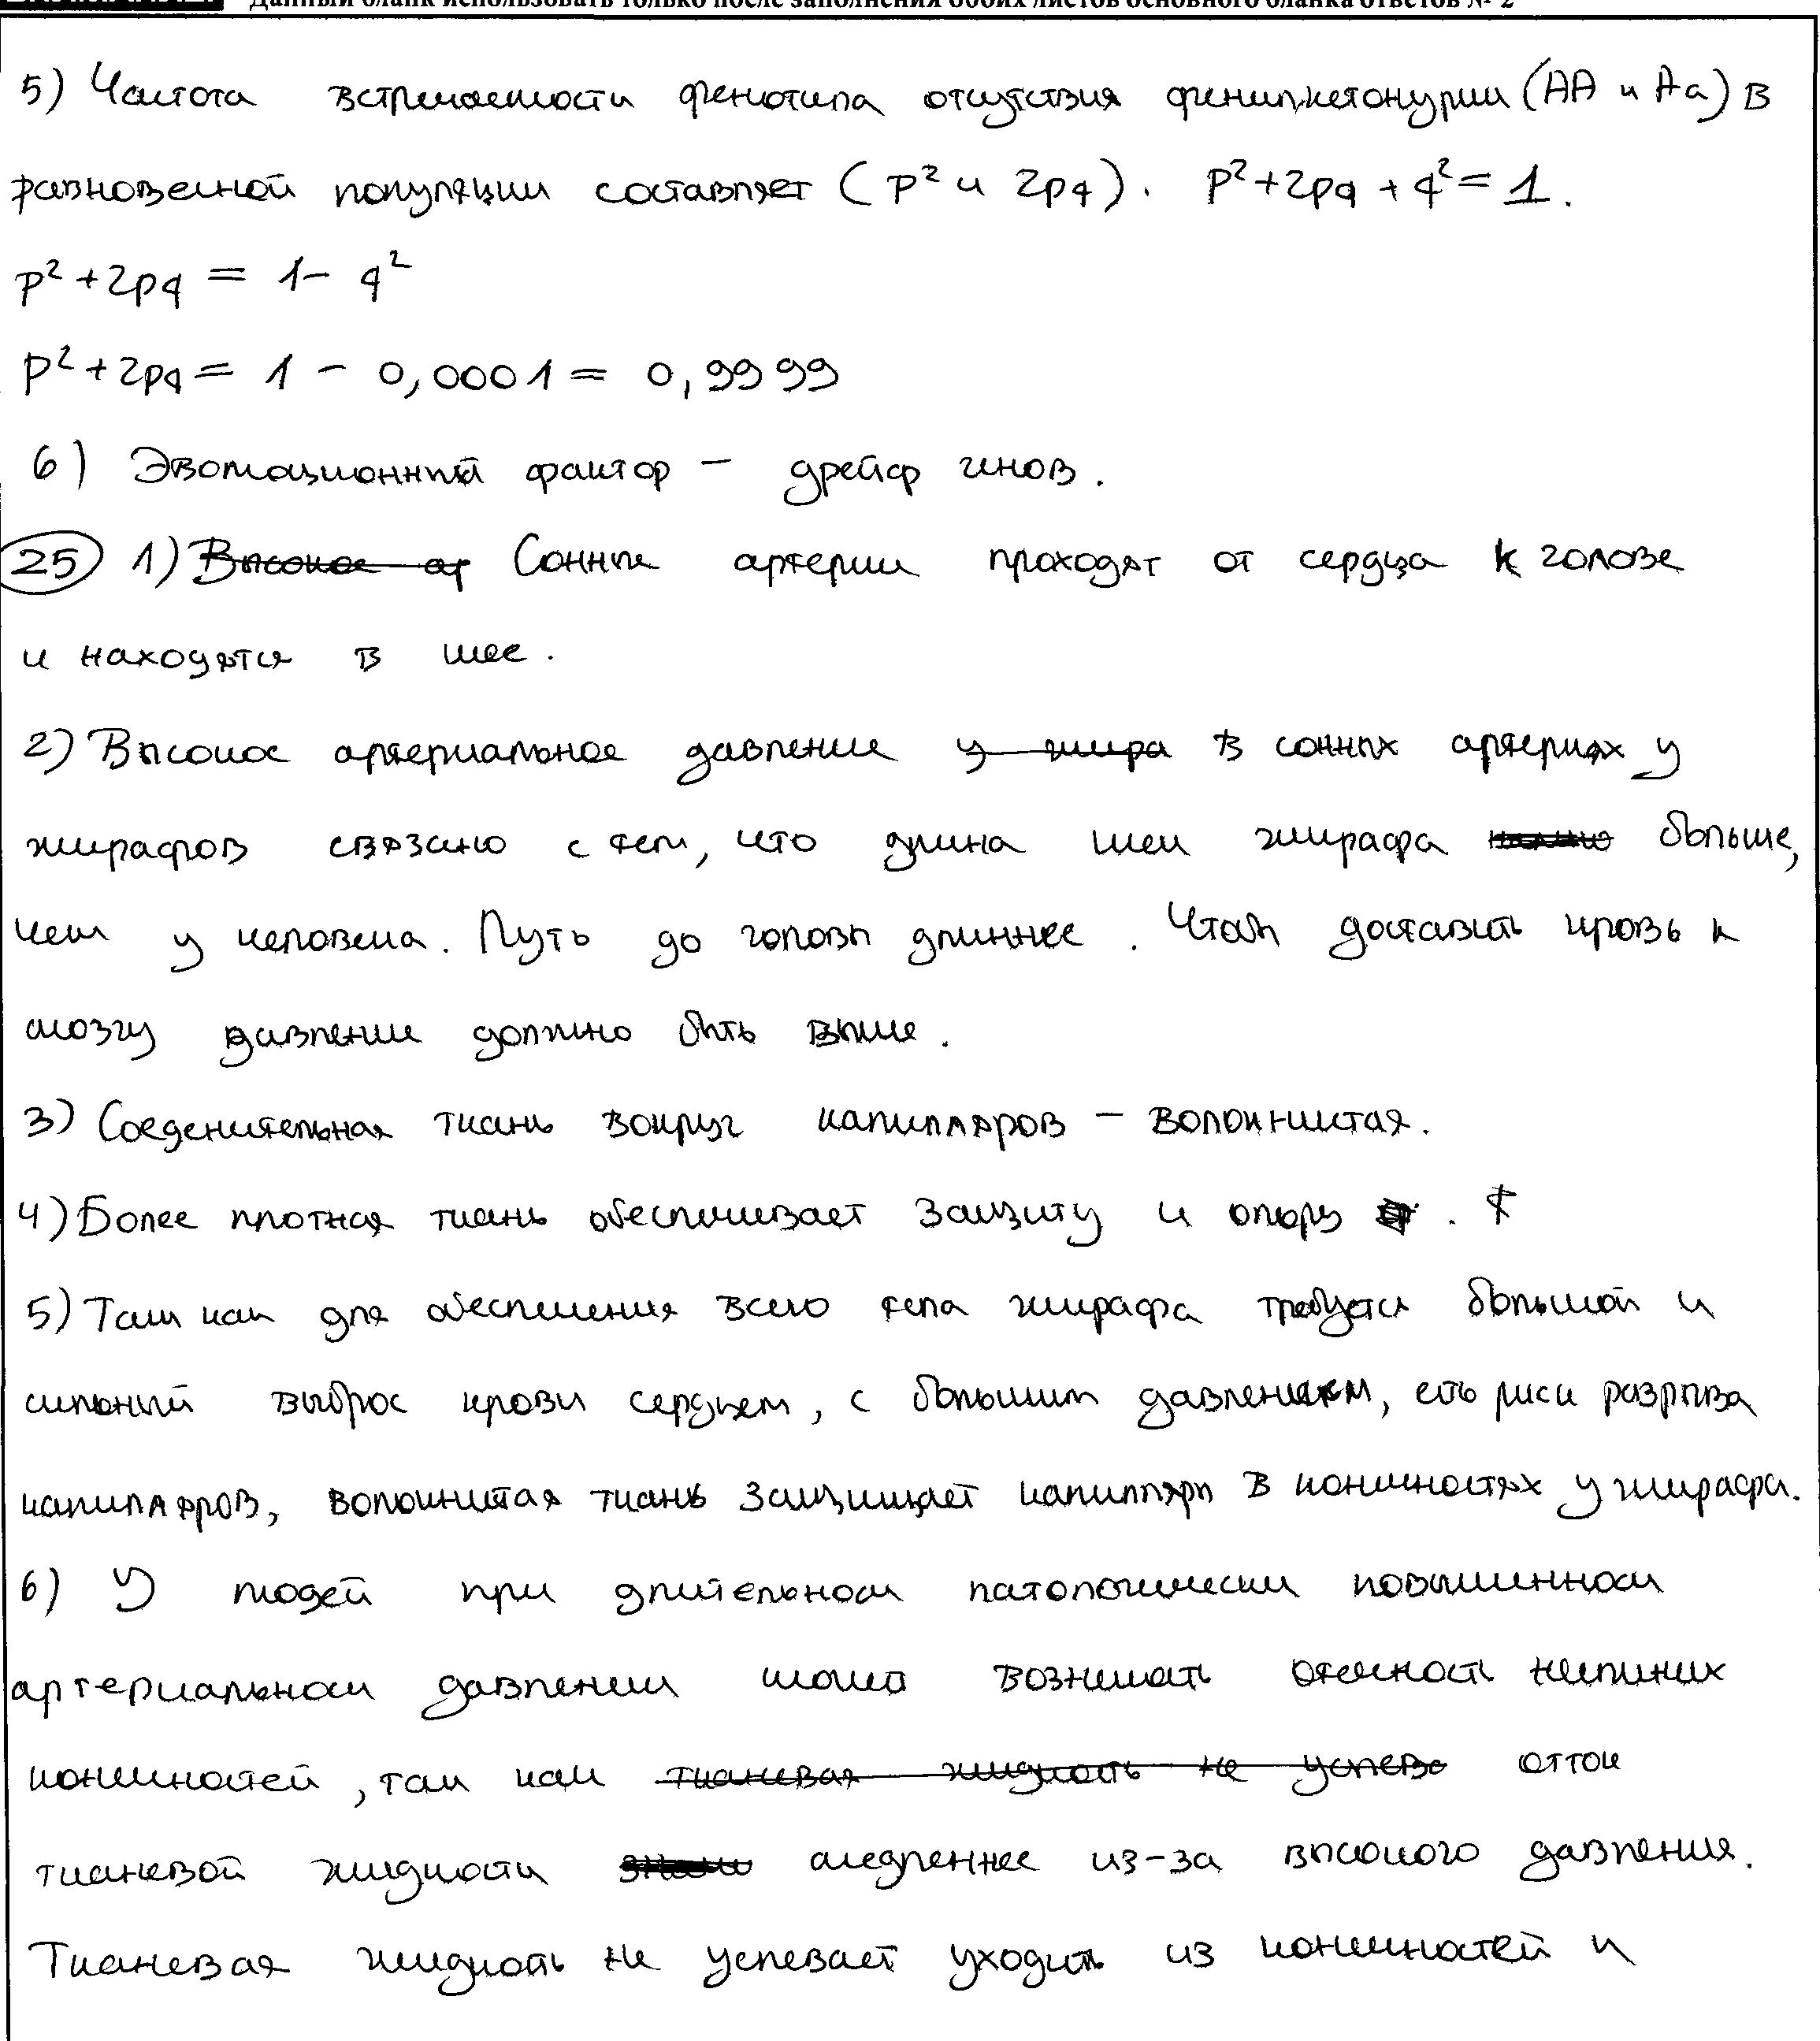 Данный бланк использовать только после заполнения обоих листов основного бланка ответов № 2
5) Частота встречаемости фенотипа отсутствия фенилкетонурии (АА и Аа) в
равновесной популяции составляет (p² и 2pq). p²+2pq+q²=1.
p²+2pq = 1- q²
p²+2pq = 1 - 0,0001 = 0,9999
6) Эволюционный фактор - дрейф генов.
25 1) Высокое ар Сонные артерии проходят от сердца к голове
и находятся в шее.
2) Высокое артериальное давление у жира в сонных артериях у
жирафов связано с тем, что длина шеи жирафа больше,
чем у человека. Путь до головы длиннее. Чтобы доставить кровь к
мозгу давление должно быть выше.
3) Соеденительная ткань вокруг капилляров - волокнистая.
4) Более плотная ткань обеспечивает защиту и опору .
5) Так как для обеспечения всего тела жирафа требуется большой и
сильный выброс крови сердцем, с большим давлением, есть риск разрыва
капилляров, волокнистая ткань защищает капилляры в конечностях у жирафа.
6) У людей при длительном патологически повышенном
артериальном давлении может возникать отечность нижних
конечностей, так как тканевая жидкость не успева отток
тканевой жидкости медленнее из-за высокого давления.
Тканевая жидкость не успевает уходить из конечностей и